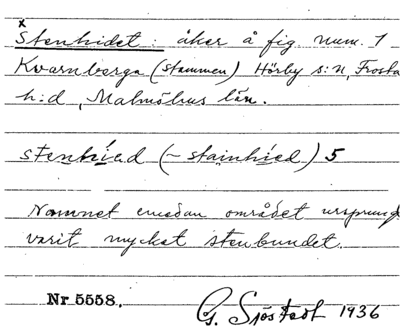 x
Stenhidet: åker å fig. num. 1
Kvarnberga (stammen) Hörby s:n, Frosta
h:d, Malmöhus län.
stenhíed (~ stainhíed) 5
Namnet emedan området ursprungl
varit mycket stenbundet.
Nr 5558. G. Sjöstedt 1936